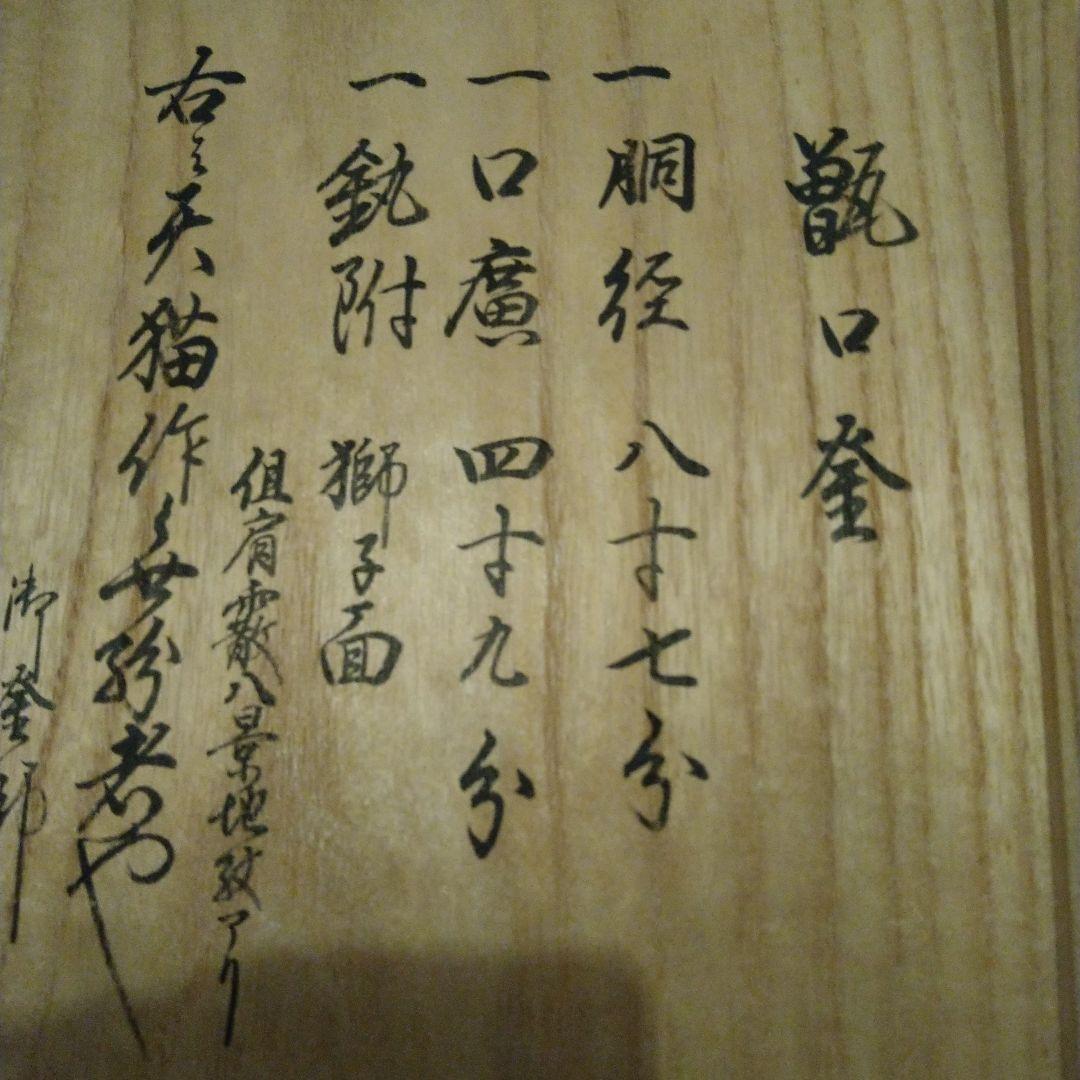 甑口釜
一 胴径 八寸七分
一 口廣 四寸九分
一 釻附 獅子面
但肩霰八景地紋アリ
右之天猫作ニ無紛者也
御釜師